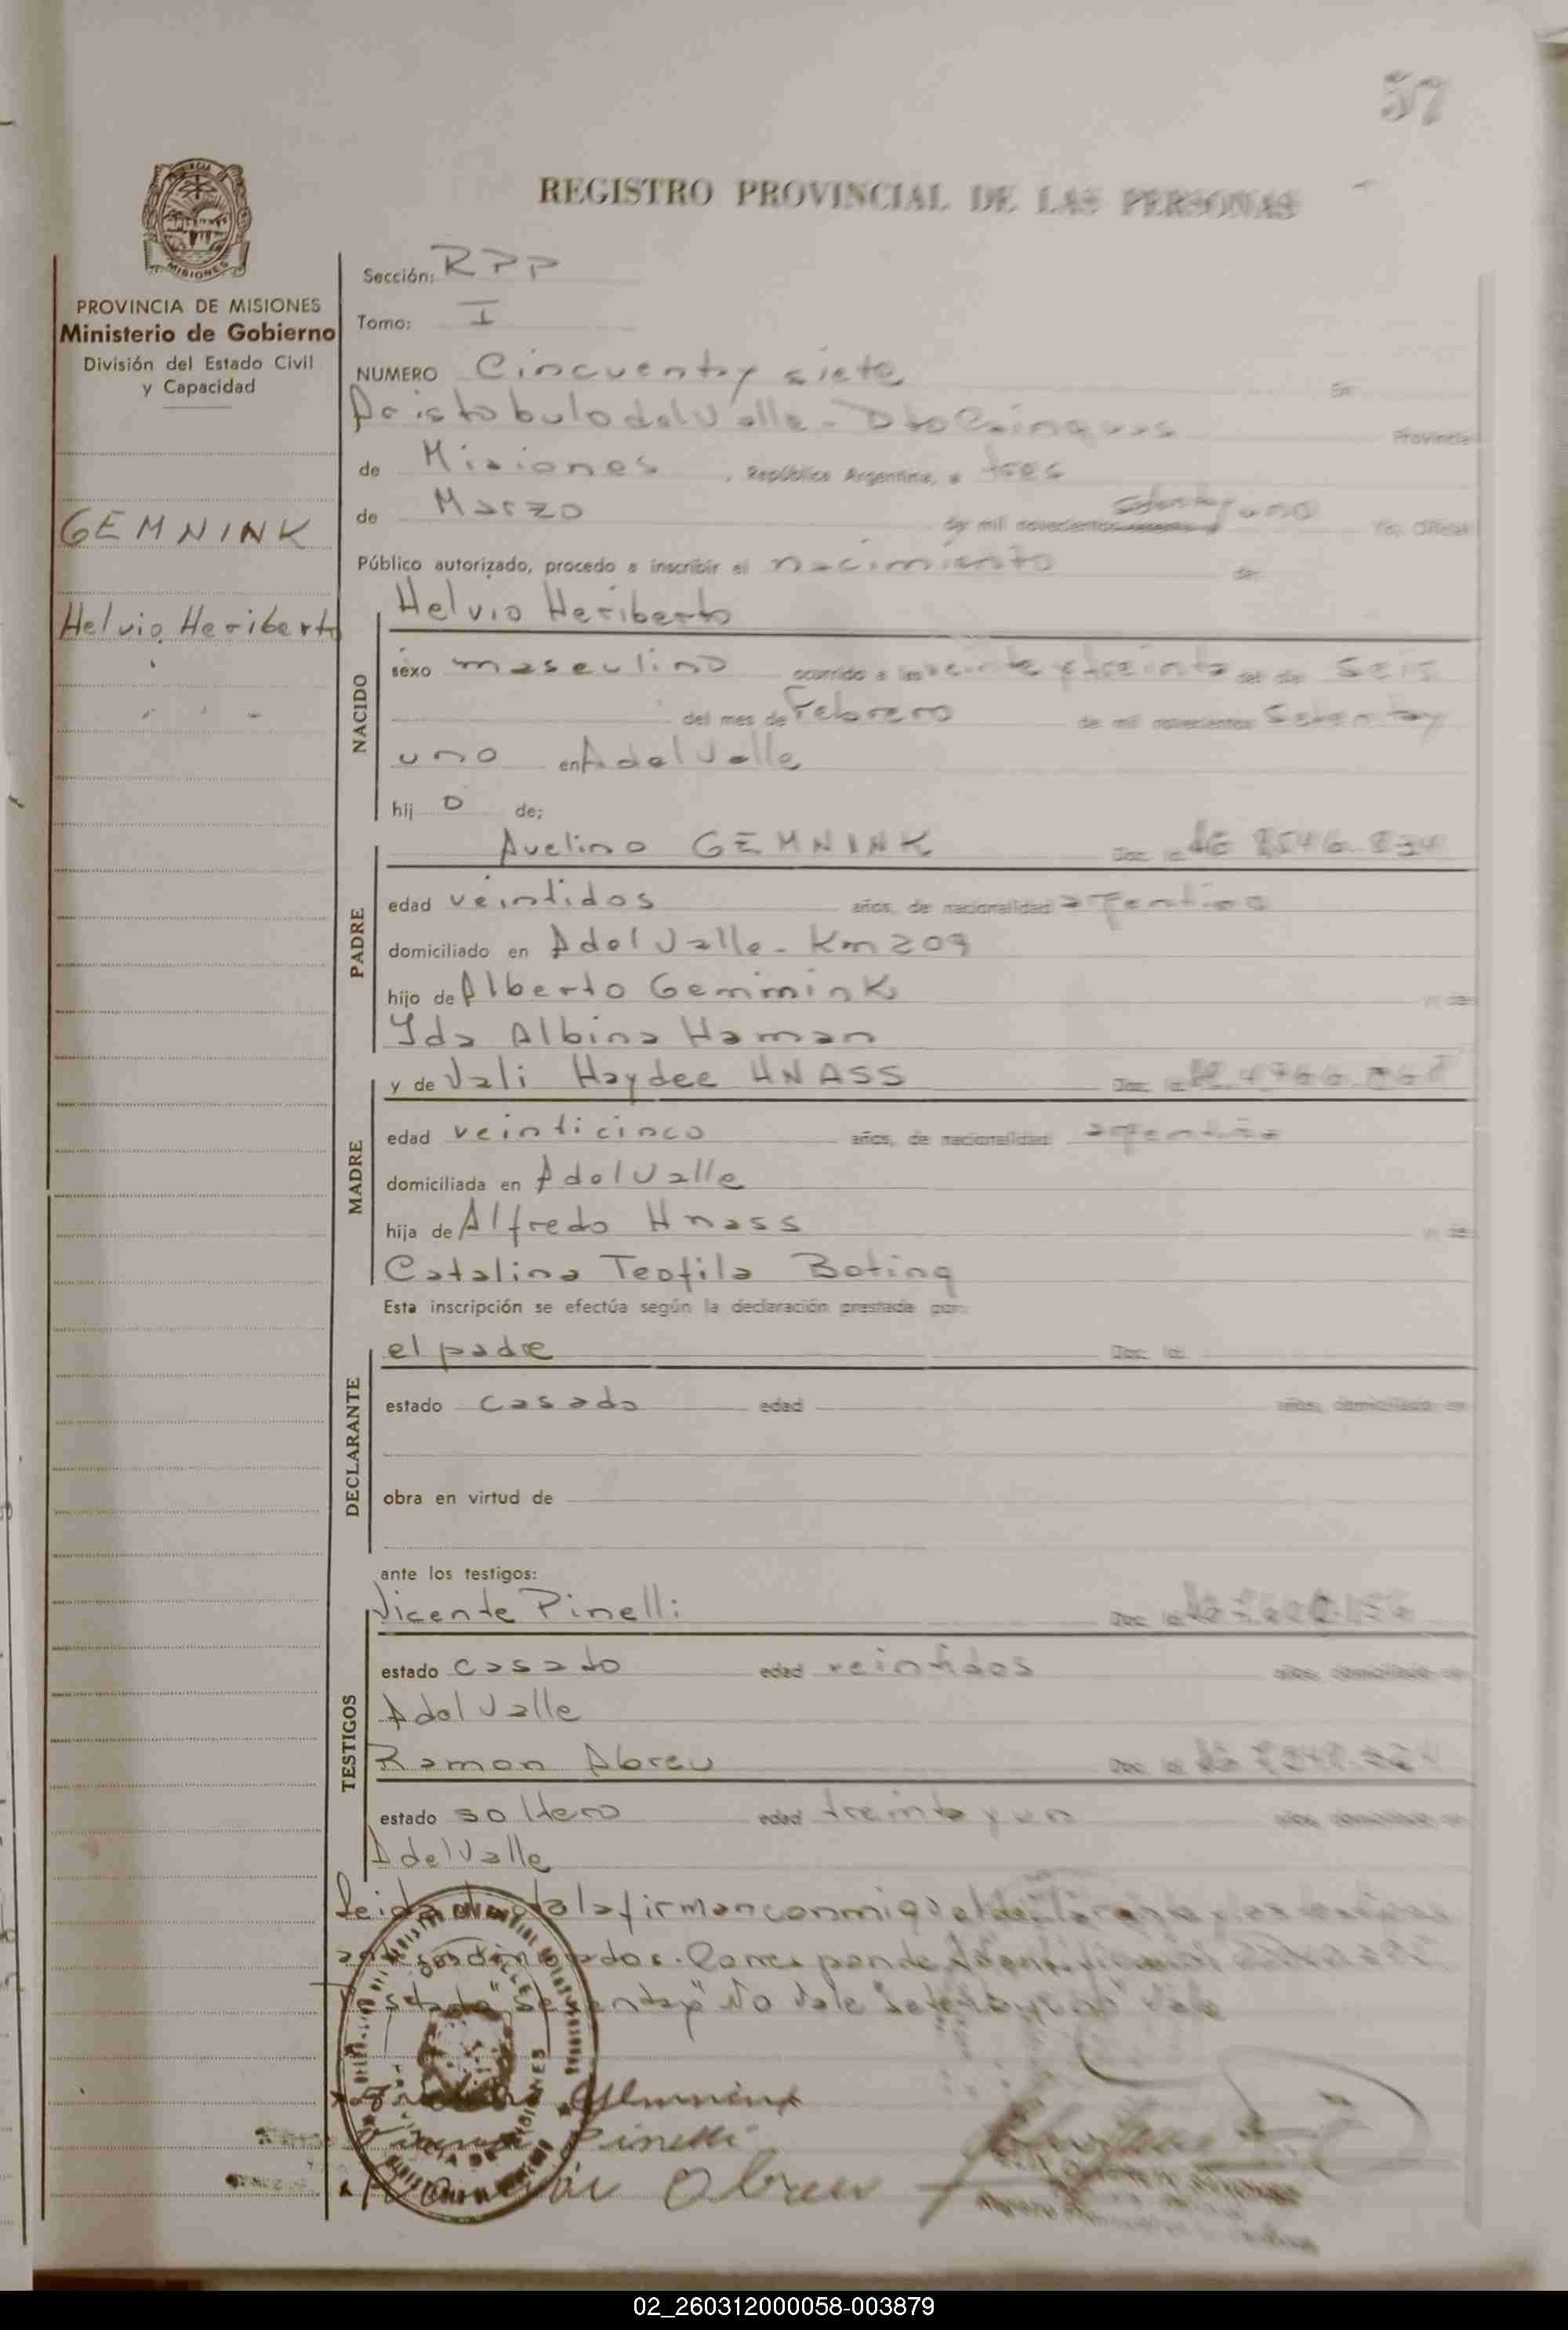 57
REGISTRO PROVINCIAL DE LAS PERSONAS
PROVINCIA DE MISIONES
Ministerio de Gobierno
División del Estado Civil
y Capacidad
GEMNINK
Helvio Heriberto
Sección: RPP
Tomo: I
NUMERO Cincuenta y siete En
Aristobulo del Valle - Dto Cainguas Provincia
de Misiones, República Argentina, a tres
de Marzo de mil novecientos setenta y uno Yo, Oficial
Público autorizado, procedo a inscribir el nacimiento de
NACIDO
Helvio Heriberto
sexo masculino ocurrido a las veinte y treinta del día seis
del mes de Febrero de mil novecientos Setenta y
uno en A del Valle
hij o de;
PADRE
Avelino GEMNINK Doc. Id.
edad veintidos años, de nacionalidad argentina
domiciliado en A del Valle - Km 209
hijo de Alberto Gemmink y de
Yda Albina Haman
MADRE
y de Vali Haydee HNASS Doc. Id.
edad veinticinco años, de nacionalidad argentina
domiciliada en A del Valle
hija de Alfredo Hnass y de
Catalina Teofila Boting
Esta inscripción se efectúa según la declaración prestada por:
DECLARANTE
el padre Doc. Id.
estado casado edad años, domiciliado en
obra en virtud de
ante los testigos:
TESTIGOS
Vicente Pinelli Doc. Id.
estado casado edad veintidos años, domiciliado en
A del Valle
Ramon Abreu Doc. Id.
estado soltero edad treinta y un años, domiciliado en
A del Valle
Leida el acta la firman conmigo el declarante y los testigos
Corresponde
No Vale "Setenta y uno" Vale
Pinelli
Abreu
02_260312000058-003879